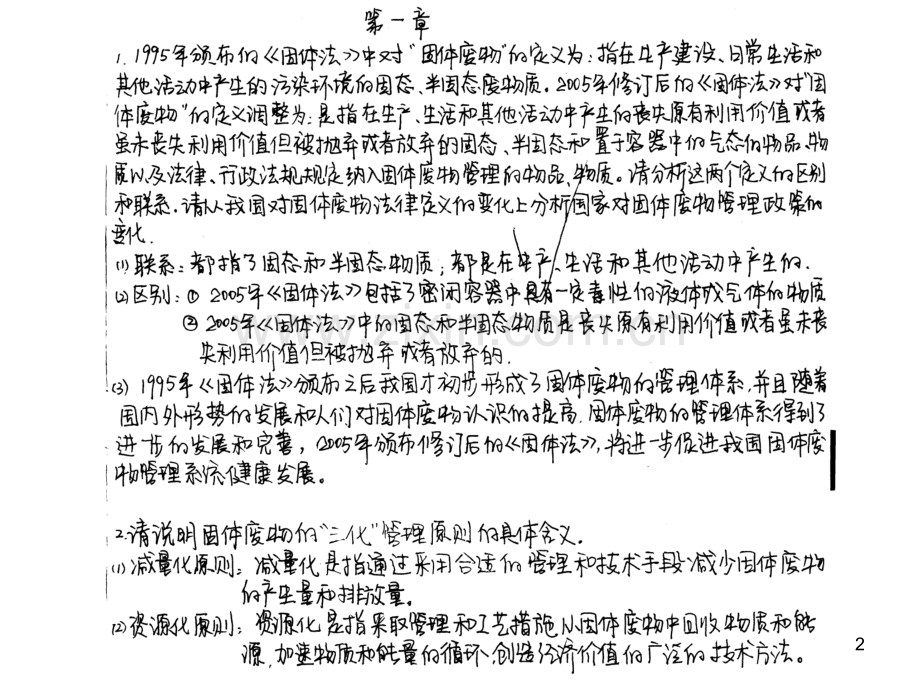 第一章
1. 1995年颁布的《固体法》中对"固体废物"的定义为：指在生产建设、日常生活和
其他活动中产生的污染环境的固态、半固态废物质。2005年修订后的《固体法》对"固
体废物"的定义调整为：是指在生产、生活和其他活动中产生的丧失原有利用价值或者
虽未丧失利用价值但被抛弃或者放弃的固态、半固态和置于容器中的气态的物品、物
质以及法律、行政法规规定纳入固体废物管理的物品、物质。请分析这两个定义的区别
和联系，请从我国对固体废物法律定义的变化上分析国家对固体废物管理政策的
变化.
(1) 联系：都指了固态和半固态物质；都是在生产、生活和其他活动中产生的.
(2) 区别：① 2005年《固体法》包括了密闭容器中具有一定毒性的液体或气体的物质
② 2005年《固体法》中的固态和半固态物质是丧失原有利用价值或者虽未丧
失利用价值但被抛弃或者放弃的.
(3) 1995年《固体法》颁布之后我国才初步形成了固体废物的管理体系，并且随着
国内外形势的发展和人们对固体废物认识的提高，固体废物的管理体系得到了
进一步的发展和完善，2005年颁布修订后的《固体法》，将进一步促进我国固体废
物管理系统健康发展。
2. 请说明固体废物的"三化"管理原则的具体含义.
(1) 减量化原则：减量化是指通过采用合适的管理和技术手段减少固体废物
的产生量和排放量。
(2) 资源化原则：资源化是指采取管理和工艺措施从固体废物中回收物质和能
源，加速物质和能量的循环，创造经济价值的广泛的技术方法。
2